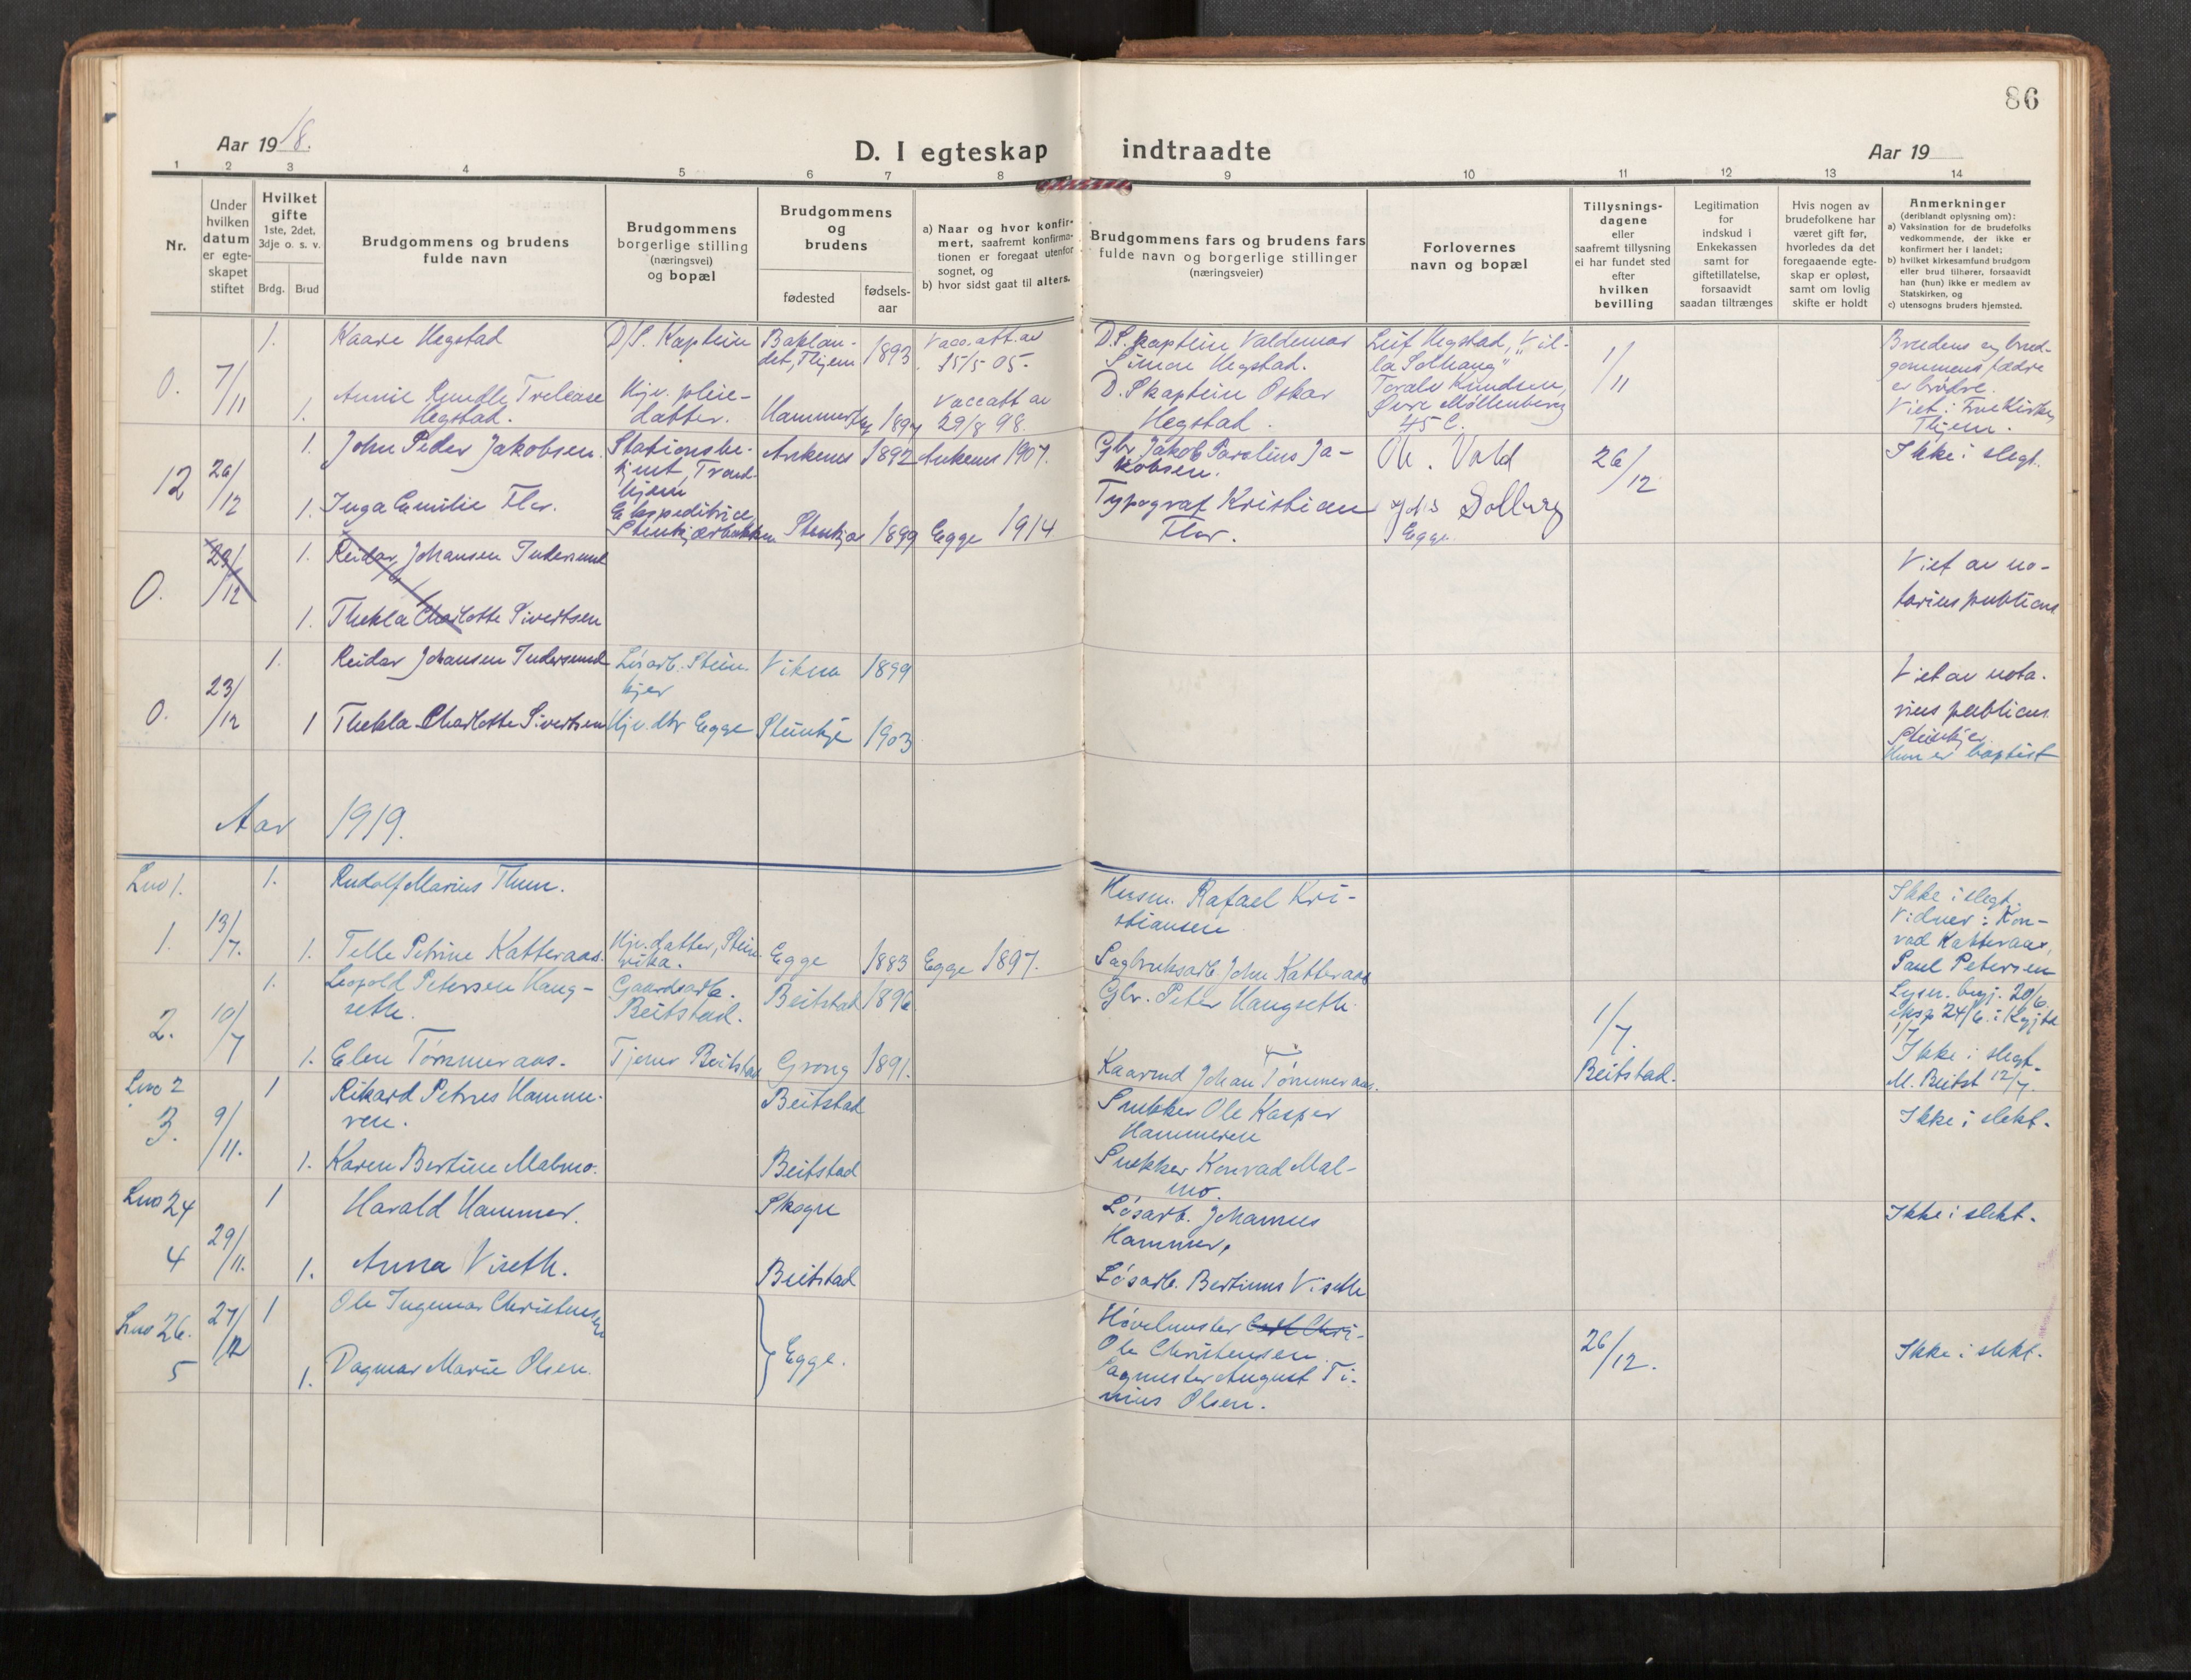 86
Aar 1918.
D. I egteskap indtraadte
Aar 19
1 2 3 4 5 6 7 8 9 10 11 12 13 14
Nr.
Under
hvilken
datum
er egte-
skapet
stiftet
Hvilket
gifte
1ste, 2det,
3dje o. s. v.
Brdg. Brud
Brudgommens og brudens
fulde navn
Brudgommens
borgerlige stilling
(næringsvei)
og bopæl
Brudgommens
og
brudens
fødested
fødsels-
aar
a) Naar og hvor konfir-
mert, saafremt konfirma-
tionen er foregaat utenfor
sognet, og
b) hvor sidst gaat til alters.
Brudgommens fars og brudens fars
fulde navn og borgerlige stillinger
(næringsveier)
Forlovernes
navn og bopæl
Tillysnings-
dagene
eller
saafremt tillysning
ei har fundet sted
efter
hvilken
bevilling
Legitimation
for
indskud i
Enkekassen
samt for
giftetillatelse,
forsaavidt
saadan tiltrænges
Hvis nogen av
brudefolkene har
været gift før,
hvorledes da det
foregaaende egte-
skap er opløst,
samt om lovlig
skifte er holdt
Anmerkninger
(deriblandt oplysning om):
a) Vaksination for de brudefolks
vedkommende, der ikke er
konfirmert her i landet;
b) hvilket kirkesamfund brudgom
eller brud tilhører, forsaavidt
han (hun) ikke er medlem av
Statskirken, og
c) utensogns bruders hjemsted.
0. 7/11
1. Kaare Hegstad
D/S. Kaptein
Baklan-
det, Thjem 1893
Vacc. att. av
15/5 05.
D.S. kaptein Valdemar
Simon Hegstad.
Leif Hegstad, "Vil-
la Solhaug"
1/11
Brudens og brud-
gommens fædre
er brødre.
Viet i Frue Kirke,
Thjem.
1. Annie Rundle Trelease
Hegstad.
Hjv. pleie-
datter.
Hammerfest 1897
Vacc att av
29/8 98.
D. S kaptein Oskar
Hegstad.
Toralv Knudsen,
Øvre Møllenberg
45 C.
12 26/12
1. John Peder Jakobsen.
Stationsbe-
tjent, Trond-
hjem
Ankenes 1892 Ankenes 1907.
Gbr Jakob Parelius Ja-
kobsen.
Ol. Vold
26/12
Ikke i slegt.
1. Inga Emilie Flor.
Ekspeditrice
Stenkjærbakken
Stenkjær 1899 Egge 1914
Typograf Kristian
Flor.
Solberg
Egge.
0. 23/12
1. Reidar Johansen Indersund
1. Thekla Charlotte Sivertsen
Viet av no-
tarius publicus
0. 23/12
1. Reidar Johansen Indersund
Løsarb. Stein-
kjer
Vikna 1899
Viet av nota-
rius publicus
Steinkjer
Hun er baptist
1 Thekla Charlotte Sivertsen
Hjv. dtr Egge Steinkje 1903
Aar 1919.
Lno 1.
1. 13/7.
1. Rudolf Marius Thun.
Husm. Rafael Kri-
stiansen
Ikke i slegt.
Vidner: Kon-
rad Katteraas,
Paul Petersen
1. Telle Petrine Katteraas.
Hjv. datter, Stein-
vika.
Egge 1883 Egge 1897.
Sagbruksarb. John Katteraas
2. 10/7
1. Leopold Petersen Haug-
seth.
Gaardsarb.
Beitstad.
Beitstad 1896
Gbr. Peter Haugseth.
1/7.
Beitstad.
Lysn. begj. 20/6.
eksp 24/6.
1/7
Ikke i slegt.
M. Beitst 12/7.
1. Elen Tømmeraas.
Tjener Beitstad Grong 1891.
Kaarmd Johan Tømmeraas.
Lno 2
3. 9/11.
1 Rikard Petrus Hamme-
ren.
Beitstad
Snekker Ole Kasper
Hammeren
Ikke i slekt.
1. Karen Bertine Malmo.
Beitstad
Snekker Konrad Mal-
mo.
Lno 24
4 29/11.
1 Harald Hammer.
Skogn
Løsarb. Johannes
Hammer.
Ikke i slekt.
1. Anna Viseth.
Beitstad
Løsarb. Bertinus Viseth
Lno 26.
5 27/12
1 Ole Ingemar Christensen
Egge.
Høvelmester Carl Chri-
Ole Christensen.
26/12.
Ikke i slekt.
1. Dagmar Marie Olsen.
Sagmester August Ti-
nius Olsen.